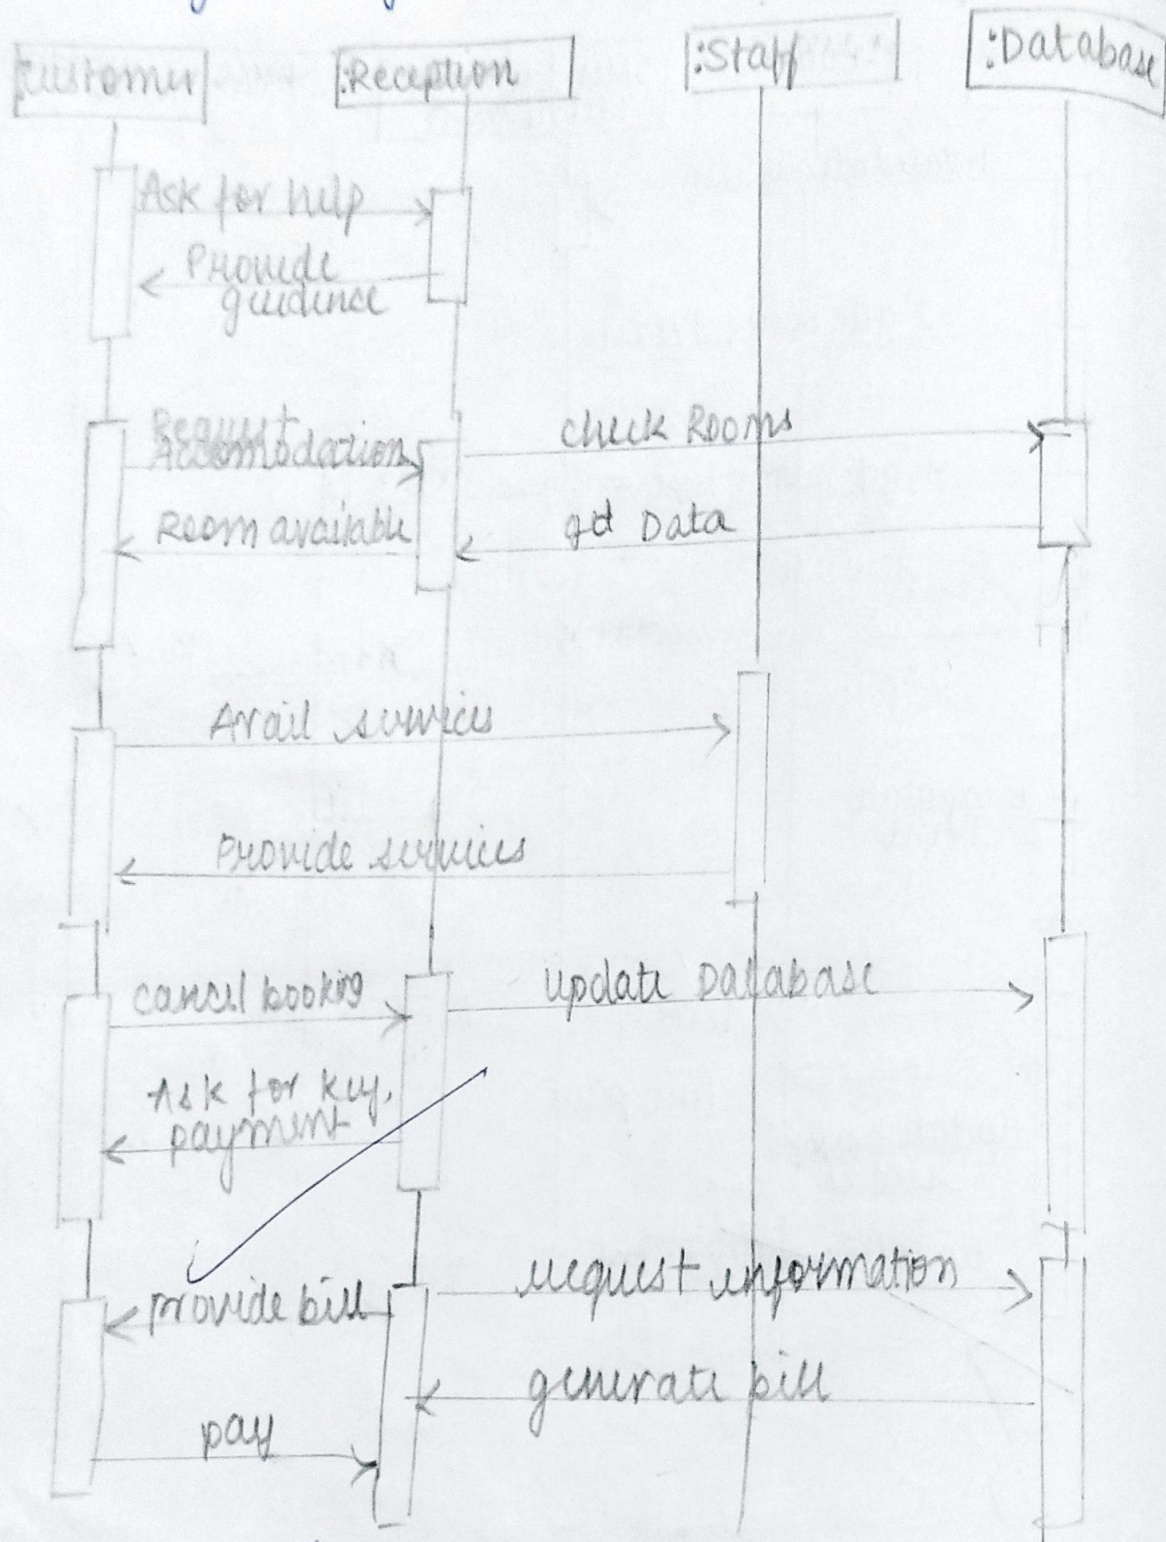 :Customer
:Reception
:Staff
:Database
Ask for help
Provide
guidence
Request
Accomodation
check Rooms
Room available
get Data
Avail services
Provide services
cancel booking
update Database
Ask for key,
payment
request information
provide bill
generate bill
pay